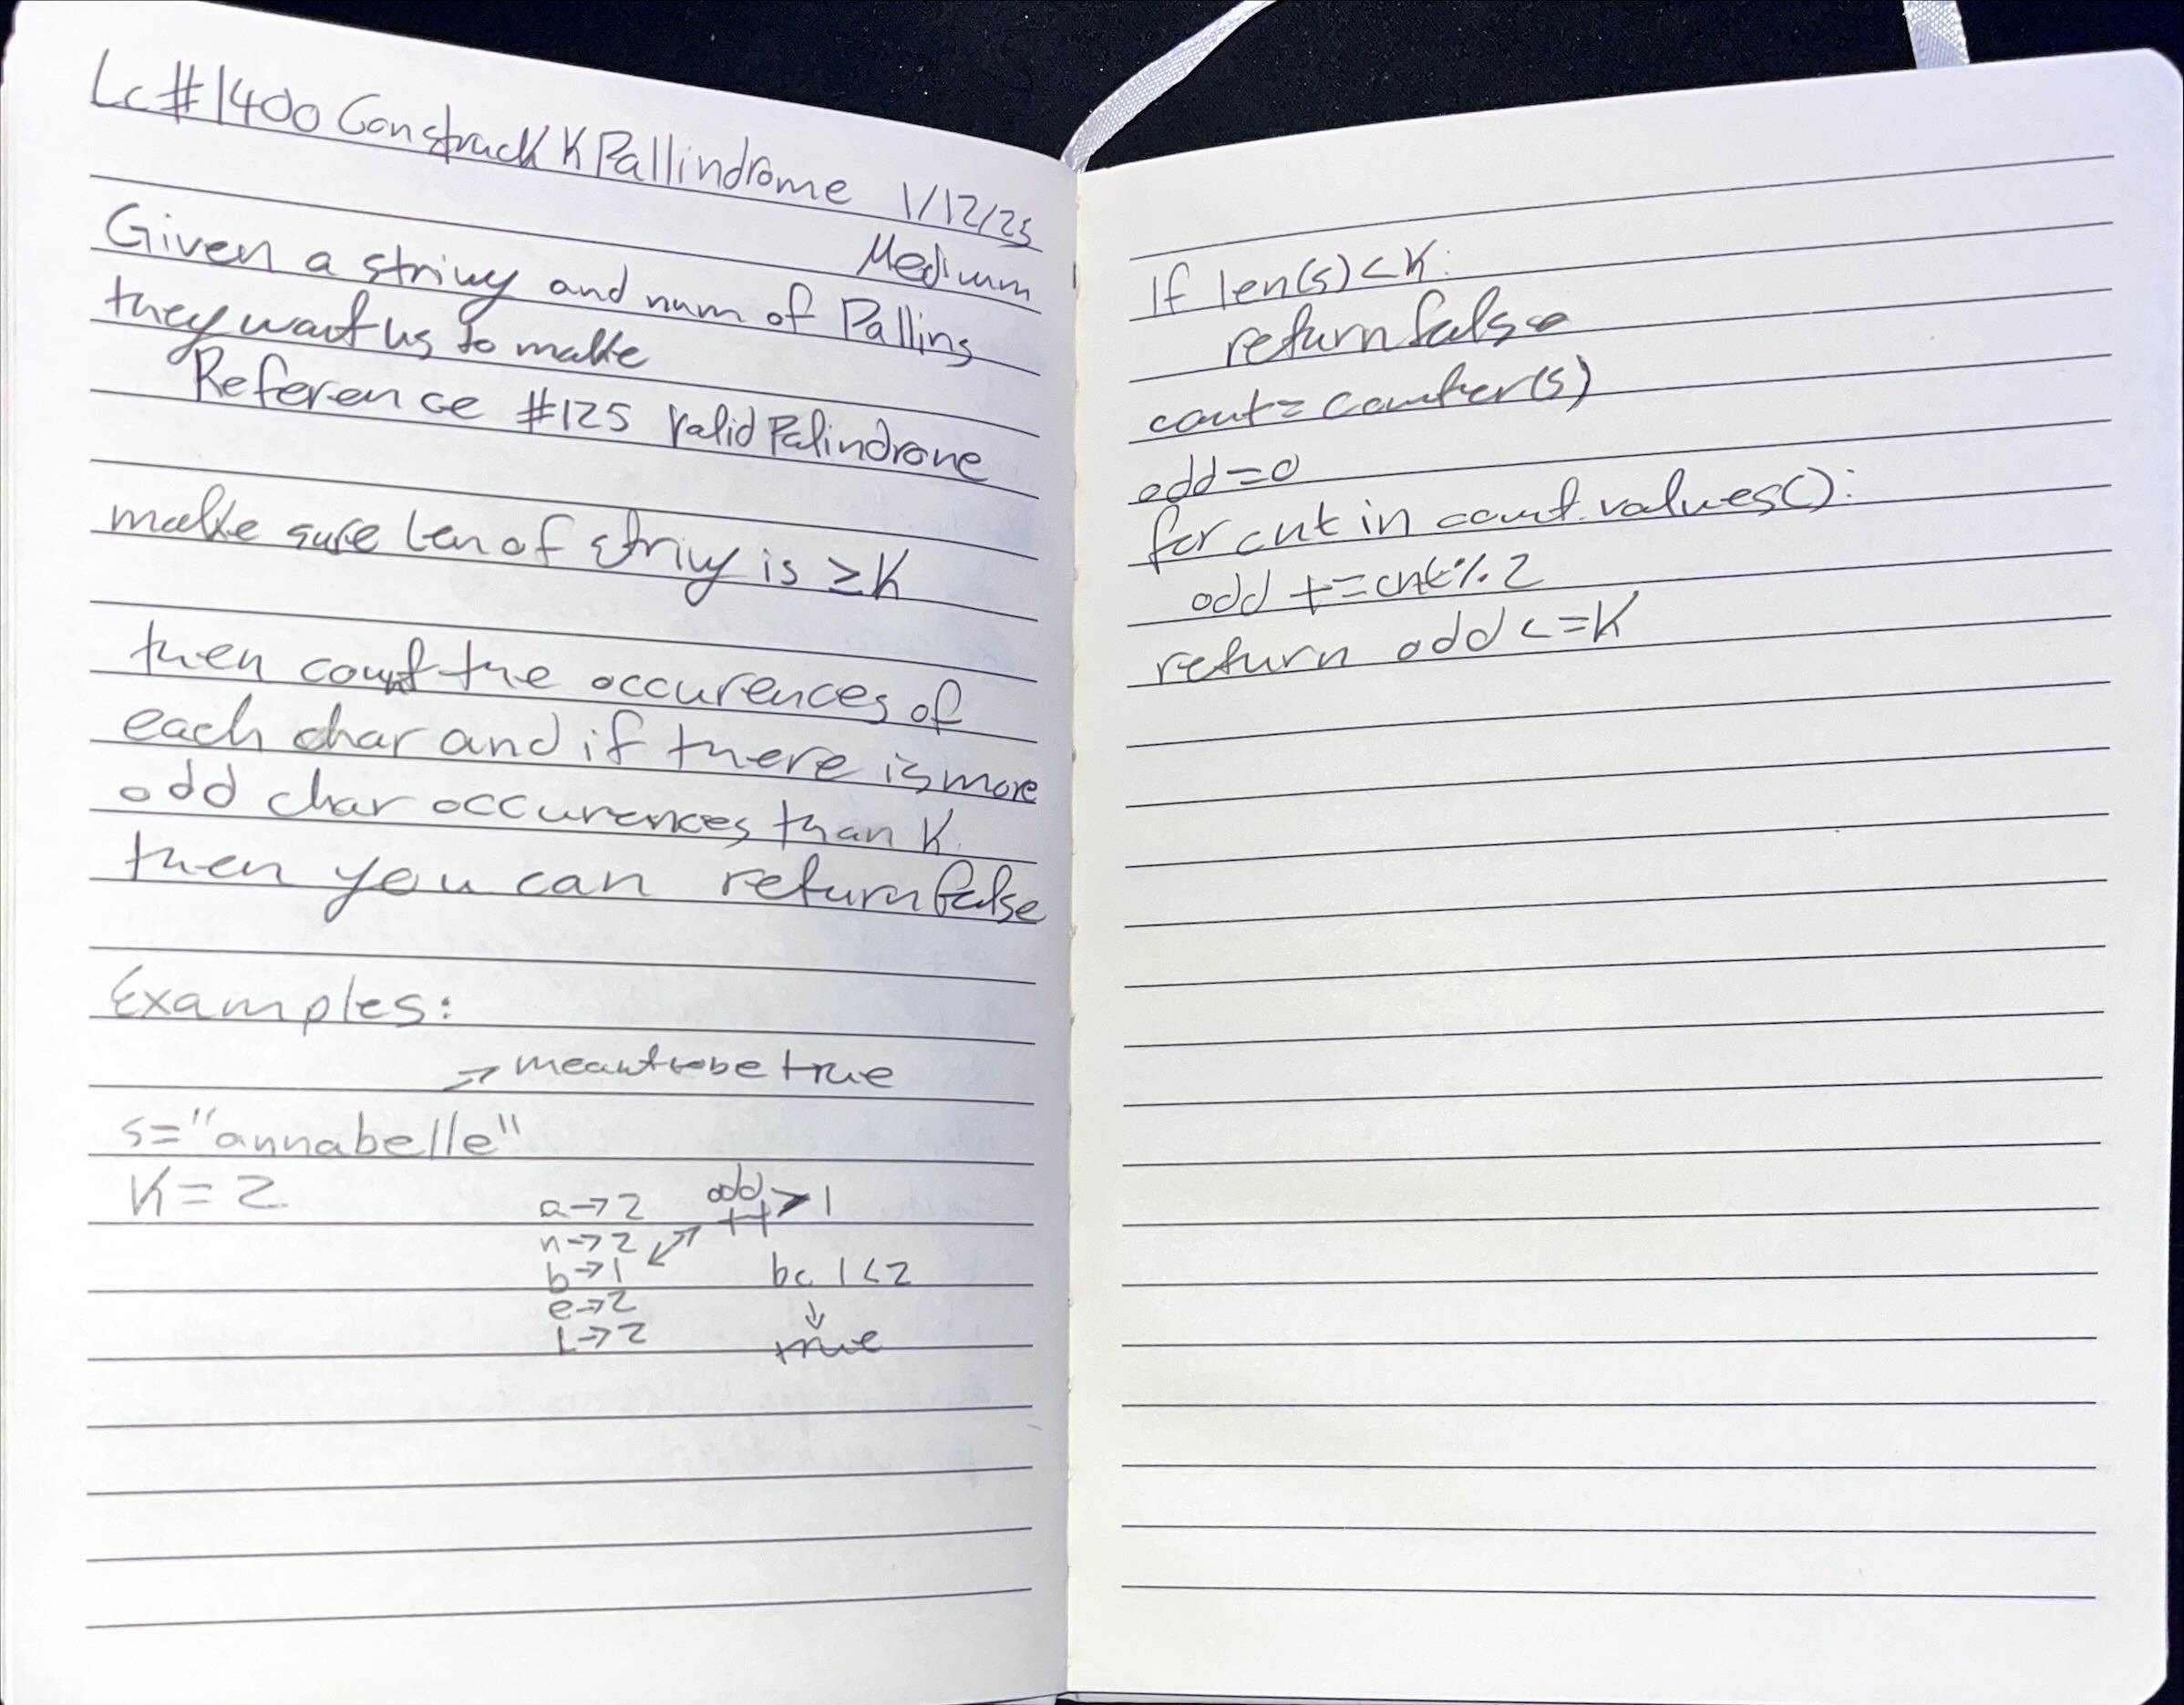 Lc #1400 Construck K Pallindrome 1/12/25
Medium
Given a string and num of Pallins
they want us to make
Reference #125 Valid Palindrone
make sure len of string is ≥ K
then count the occurences of
each char and if there is more
odd char occurences than K
then you can return false
Examples:
→ meant to be true
s="annabelle"
K=2
a→2
n→2
b→1
e→2
L→2
odd ++ > 1
bc 1<2
↓
true
If len(s)<K:
return false
count=counter(s)
odd=0
for cnt in count.values():
odd +=cnt%2
return odd <=K